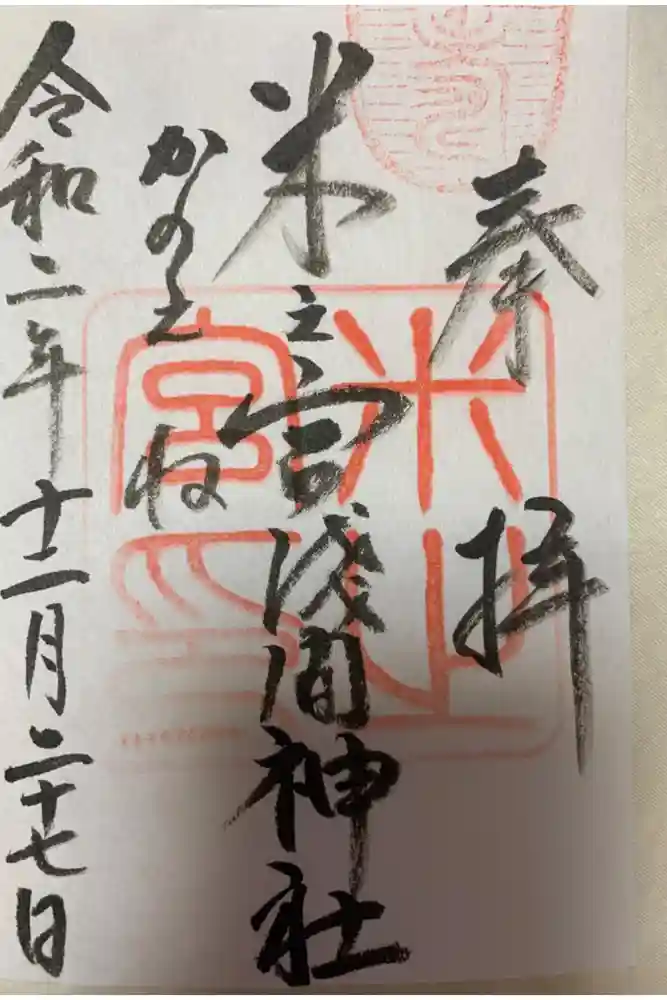 奉拝
米之宮浅間神社
かのえね
令和二年十二月二十七日
米之
宮印